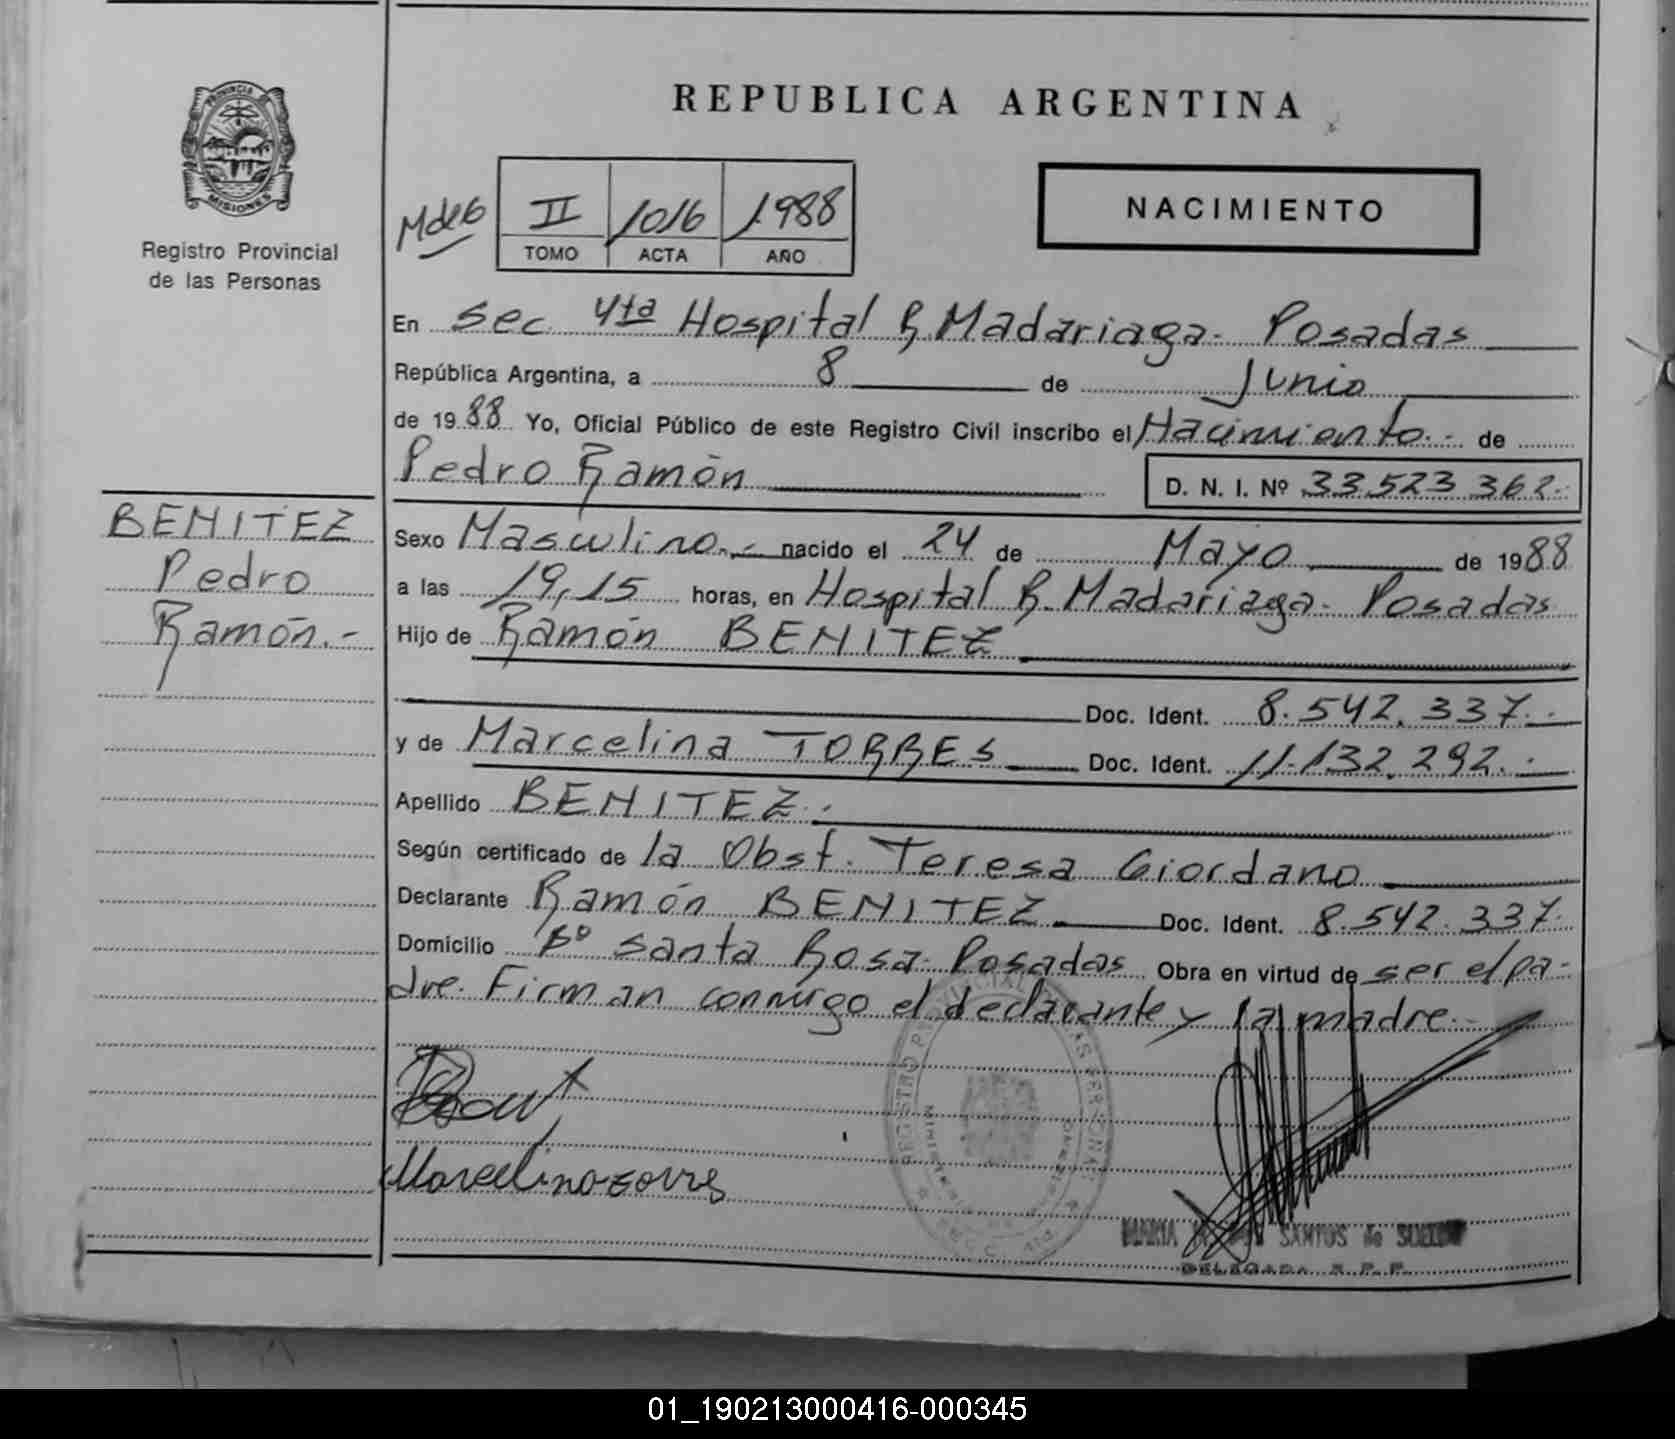 REPUBLICA ARGENTINA
PROVINCIA DE
MISIONES
Registro Provincial
de las Personas
II 1016 1988
TOMO ACTA AÑO
NACIMIENTO
En Sec. 4ta Hospital R. Madariaga - Posadas
República Argentina, a 8 de Junio
de 1988 Yo, Oficial Público de este Registro Civil inscribo el Nacimiento.- de
Pedro Ramón
D. N. I. Nº 33.523.362.-
BENITEZ
Pedro
Ramón.-
Sexo Masculino.- nacido el 24 de Mayo de 1988
a las 19,15 horas, en Hospital R. Madariaga - Posadas
Hijo de Ramón BENITEZ
Doc. Ident. 8.542.337.-
y de Marcelina TORRES Doc. Ident. 11.132.292.-
Apellido BENITEZ.-
Según certificado de la Obst. Teresa Giordano
Declarante Ramón BENITEZ Doc. Ident. 8.542.337.
Domicilio Bº Santa Rosa - Posadas Obra en virtud de ser el pa-
dre. Firman conmigo el declarante y la madre.-
Marcelina torres
MARIA SANTOS de
DELEGADA R. P. P.
01_190213000416-000345